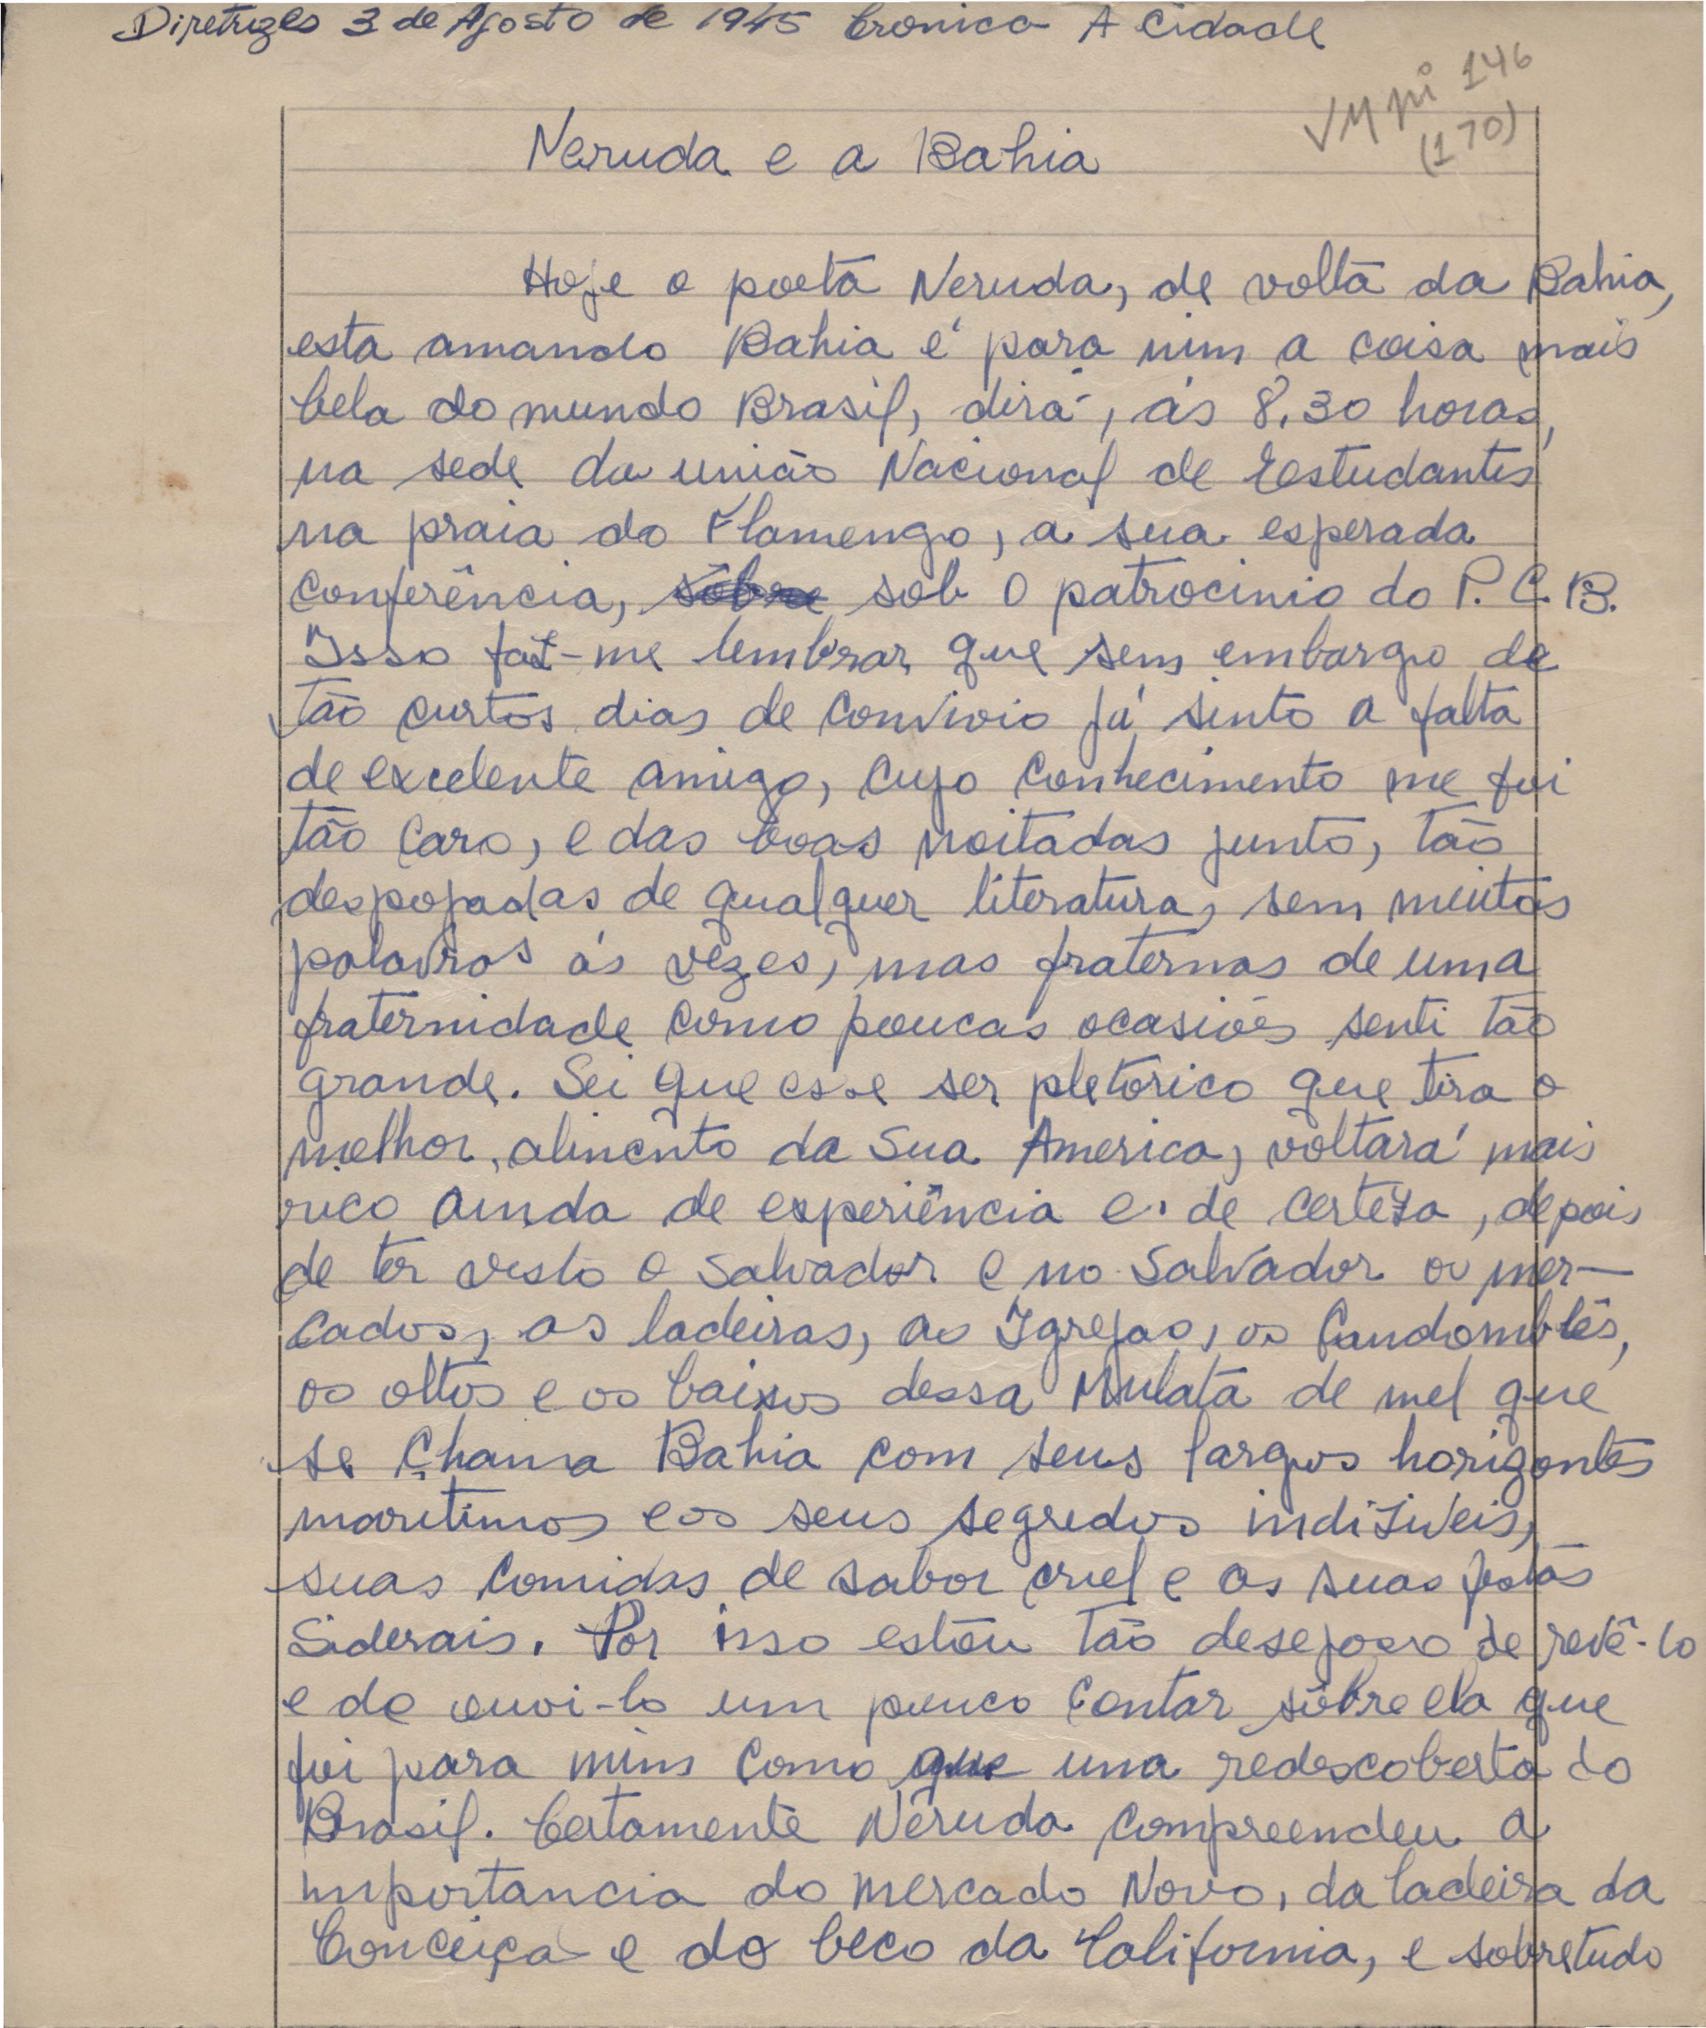 Diretrizes 3 de Agosto de 1945 Cronica A Cidade
VM pi 146
(170)
Neruda e a Bahia
Hoje o poeta Neruda, de volta da Bahia,
esta amando Bahia é para mim a coisa mais
bela do mundo Brasil, dirá, ás 8,30 horas,
na sede da união Nacional de Estudantes
na praia do Flamengo, a sua esperada
conferência, sôbre sob o patrocinio do P. C. B.
Isso faz-me lembrar que sem embargo de
tão curtos dias de convivio já sinto a falta
de excelente amigo, cujo conhecimento me foi
tão caro, e das boas noitadas junto, tão
despojadas de qualquer literatura, sem muitas
palavras ás vezes, mas fraternas de uma
fraternidade como poucas ocasiões senti tão
grande. Sei que esse ser pletorico que tira o
melhor alimento da Sua America, voltará mais
rico ainda de experiência e de certeza, depois
de ter visto o Salvador e no Salvador os mer-
cados, as ladeiras, as Igrejas, os Candomblês,
os altos e os baixos dessa Mulata de mel que
se chama Bahia com seus largos horizontes
maritimos e os seus segredos indiziveis,
suas comidas de sabor cruel e as suas festas
Siderais. Por isso estou tão desejoso de revê-lo
e de ouvi-lo um pouco contar sôbre ela que
foi para mim como que uma redescoberta do
Brasil. Certamente Neruda compreendeu a
importancia do mercado Novo, da ladeira da
Conceiçã e do beco da California, e sobretudo